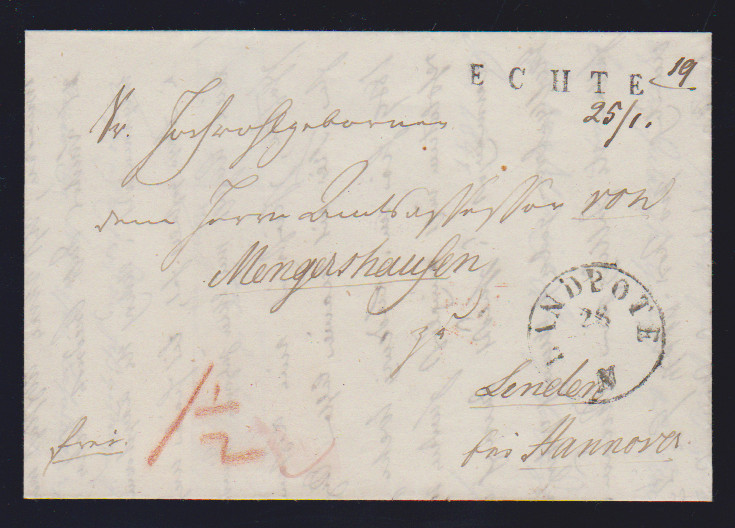 ECHTE 19
25/1.
Sr. Hochwohlgeboren
dem Herrn Amtsassessor von
Mengershausen
zu
LANDBOTE
26
N
Linden
bei Hannover.
frei
1 1/2